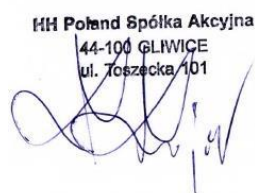 HH Poland Spółka Akcyjna
44-100 GLIWICE
ul. Toszecka 101